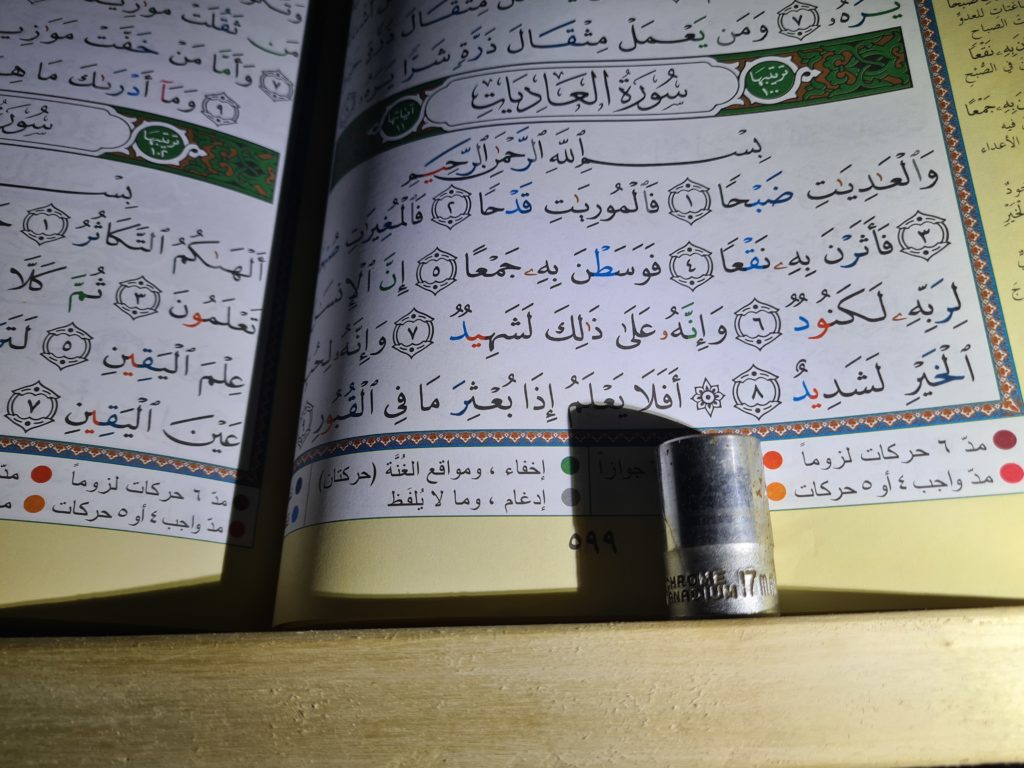 يَرَهُۥ ٧ وَمَن يَعْمَلْ مِثْقَالَ ذَرَّةٍ شَرًّا يَرَهُۥ
ترتيبها ١٠٠ سُورَةُ الْعَادِيَاتِ آياتها ١١
بِسْمِ ٱللَّهِ ٱلرَّحْمَٰنِ ٱلرَّحِيمِ
وَٱلْعَٰدِيَٰتِ ضَبْحًا ١ فَٱلْمُورِيَٰتِ قَدْحًا ٢ فَٱلْمُغِيرَٰتِ
٣ فَأَثَرْنَ بِهِۦ نَقْعًا ٤ فَوَسَطْنَ بِهِۦ جَمْعًا ٥ إِنَّ ٱلْإِنسَٰ
لِرَبِّهِۦ لَكَنُودٌ ٦ وَإِنَّهُۥ عَلَىٰ ذَٰلِكَ لَشَهِيدٌ ٧ وَإِنَّهُۥ لِحُ
ٱلْخَيْرِ لَشَدِيدٌ ٨ ۞ أَفَلَا يَعْلَمُ إِذَا بُعْثِرَ مَا فِى ٱلْقُبُورِ
مدّ ٦ حركات لزوماً جوازاً إخفاء ، ومواقع الغُنَّة (حركتان)
مدّ واجب ٤ أو ٥ حركات إدغام ، وما لا يُلفَظ
٥٩٩
CHROME
VANADIUM 17m
بِهِۦ نَقْعًا
فِي الصُّبْحِ
بِهِۦ جَمْعًا
الأعداء
مَن ثَقُلَتْ مَوَٰزِ
٧ وَأَمَّا مَنْ خَفَّتْ مَوَٰزِ
٩ وَمَآ أَدْرَىٰكَ مَا هِ
ترتيبها ١٠٢ سُورَ
بِسْ
أَلْهَىٰكُمُ ٱلتَّكَاثُرُ ١
تَعْلَمُونَ ٣ ثُمَّ كَلَّا
عِلْمَ ٱلْيَقِينِ ٥ لَتَرَ
عَيْنَ ٱلْيَقِينِ ٧
مدّ ٦ حركات لزوماً مدّ
مدّ واجب ٤ أو ٥ حركات